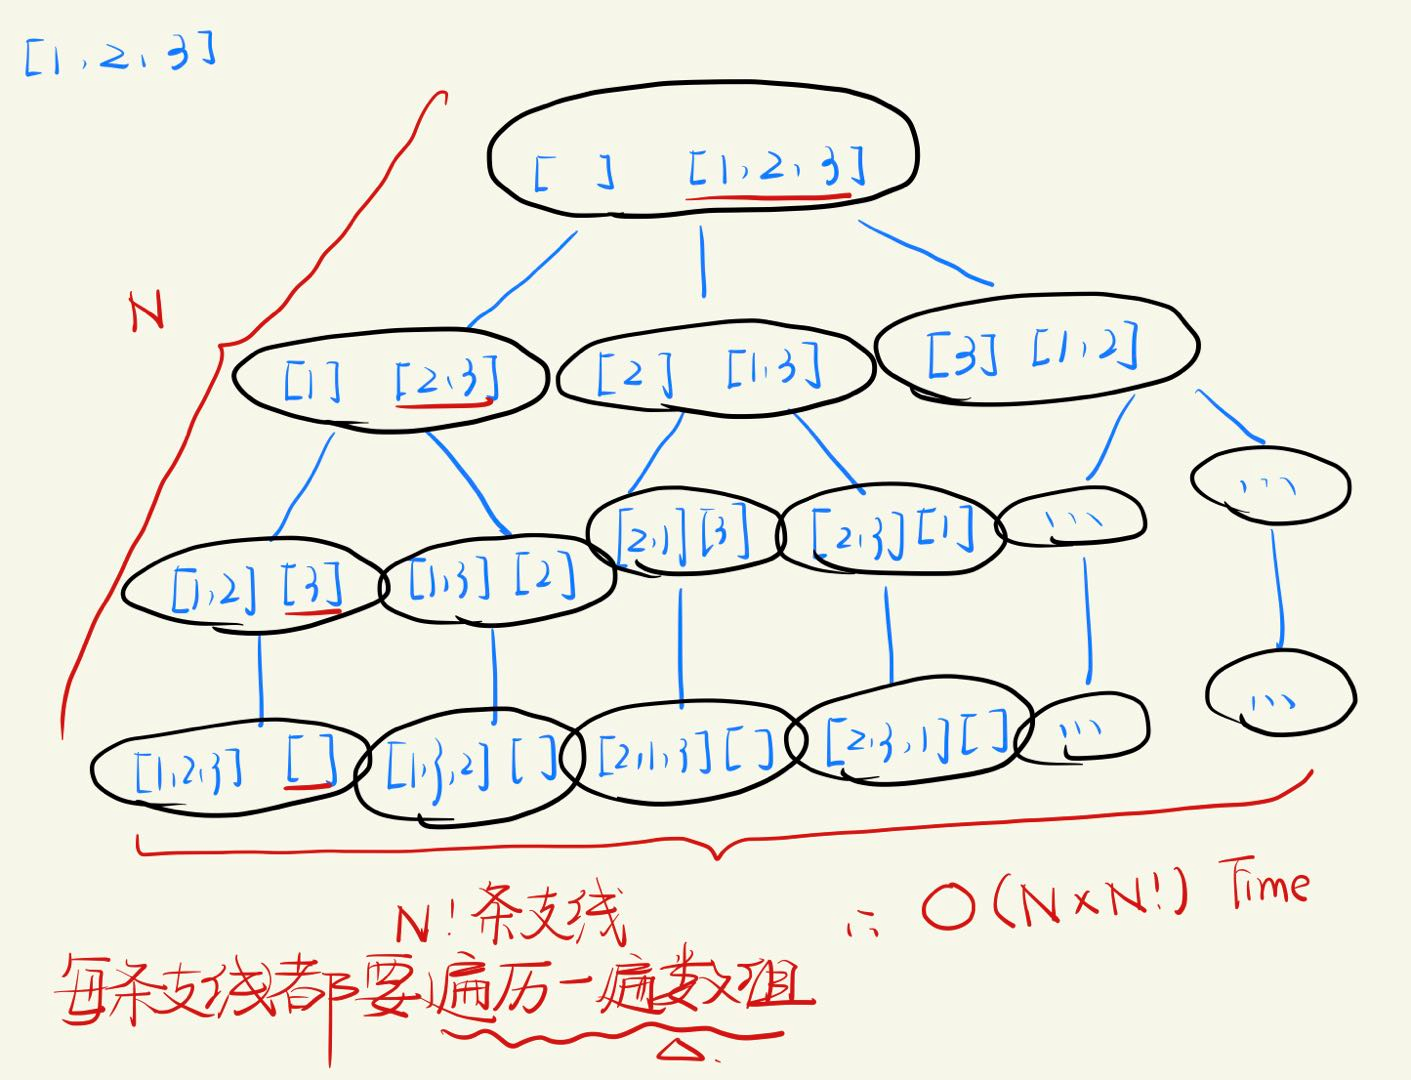 [1,2,3]
[ ] [1,2,3]
N
[1] [2,3] [2] [1,3] [3] [1,2]
[1,2] [3] [1,3] [2] [2,1] [3] [2,3] [1] ... ...
[1,2,3] [ ] [1,3,2] [ ] [2,1,3] [ ] [2,3,1] [ ] ... ...
N!条支线 ∴ O(N×N!) Time
每条支线都要遍历一遍数组